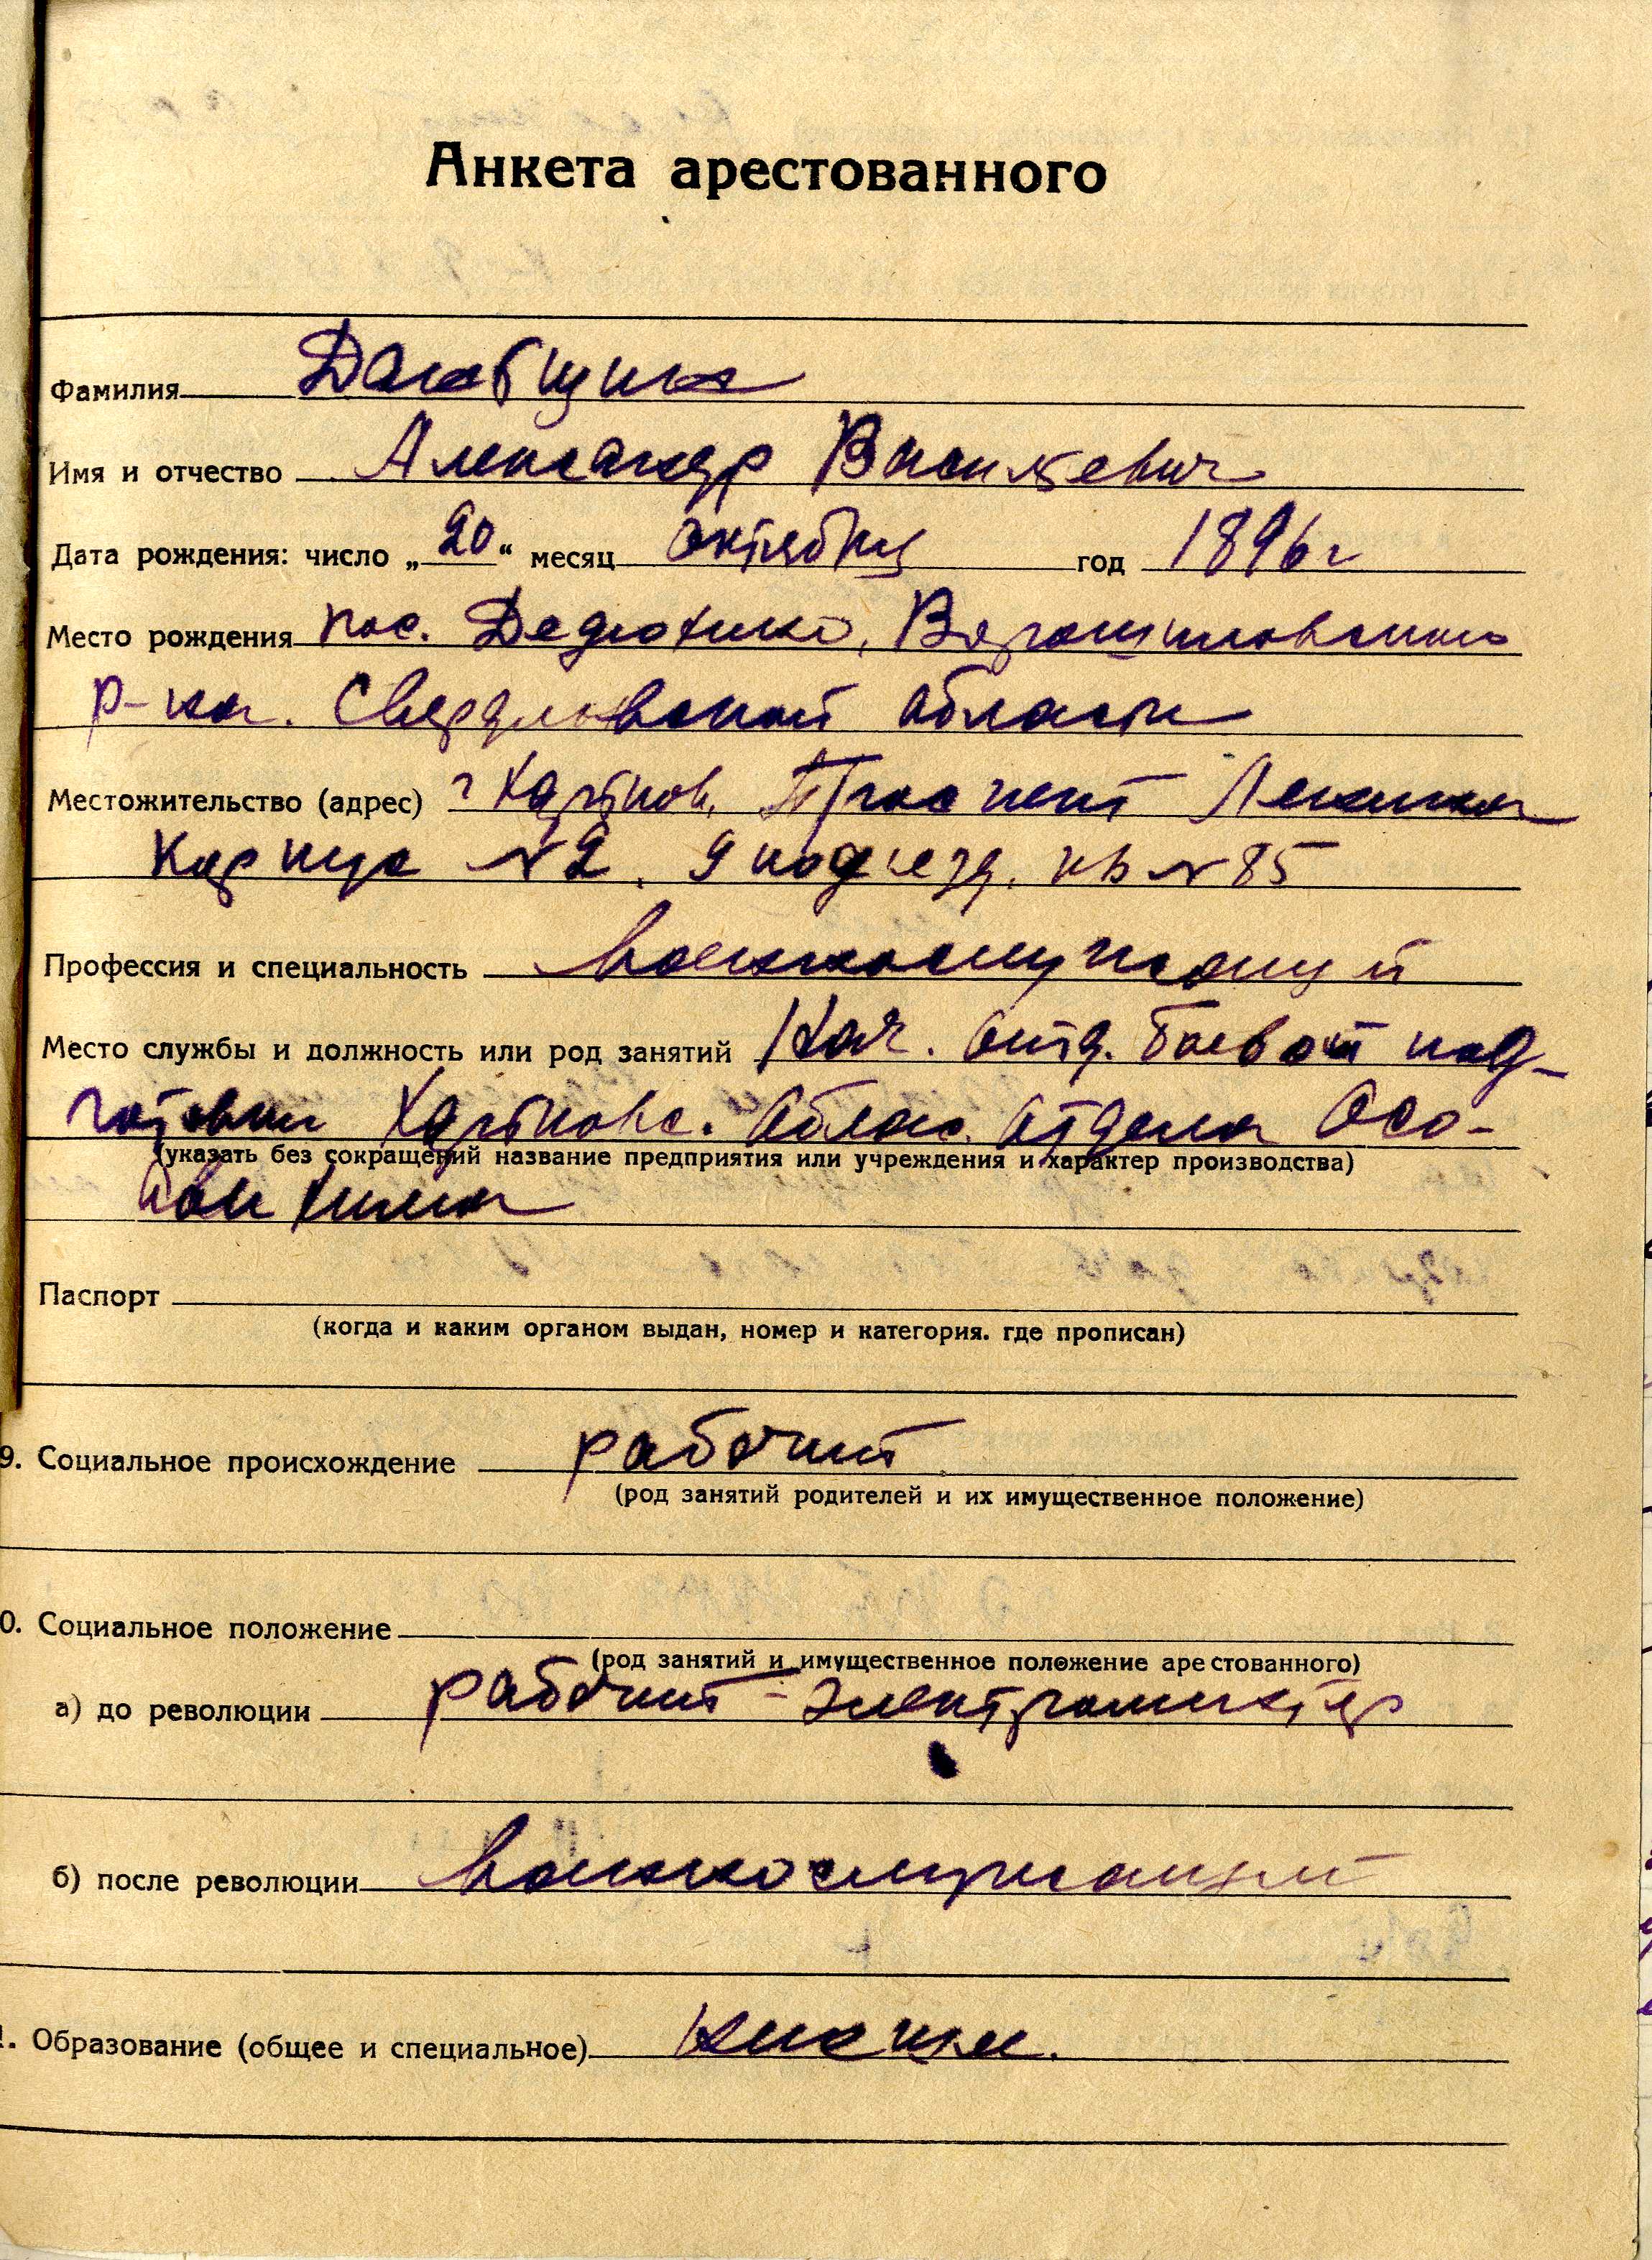 Анкета арестованного
Фамилия
Имя и отчество Александр Васильевич
Дата рождения: число „20“ месяц октября год 1896 г
Место рождения пос. Дедюхино, Ворошиловского
р-на. Свердловской области
Местожительство (адрес) г Харьков, Проспект Ленина
Корпус №2, 9 подъезд, кв №85
Профессия и специальность военнослужащий
Место службы и должность или род занятий Нач. отд. боевой под-
готовки Харьковс. Облас. отдела Осо-
(указать без сокращений название предприятия или учреждения и характер производства)
авиахима
Паспорт
(когда и каким органом выдан, номер и категория. где прописан)
9. Социальное происхождение рабочий
(род занятий родителей и их имущественное положение)
0. Социальное положение
(род занятий и имущественное положение арестованного)
а) до революции рабочий - электромонтер
б) после революции военнослужащий
. Образование (общее и специальное) низшее.